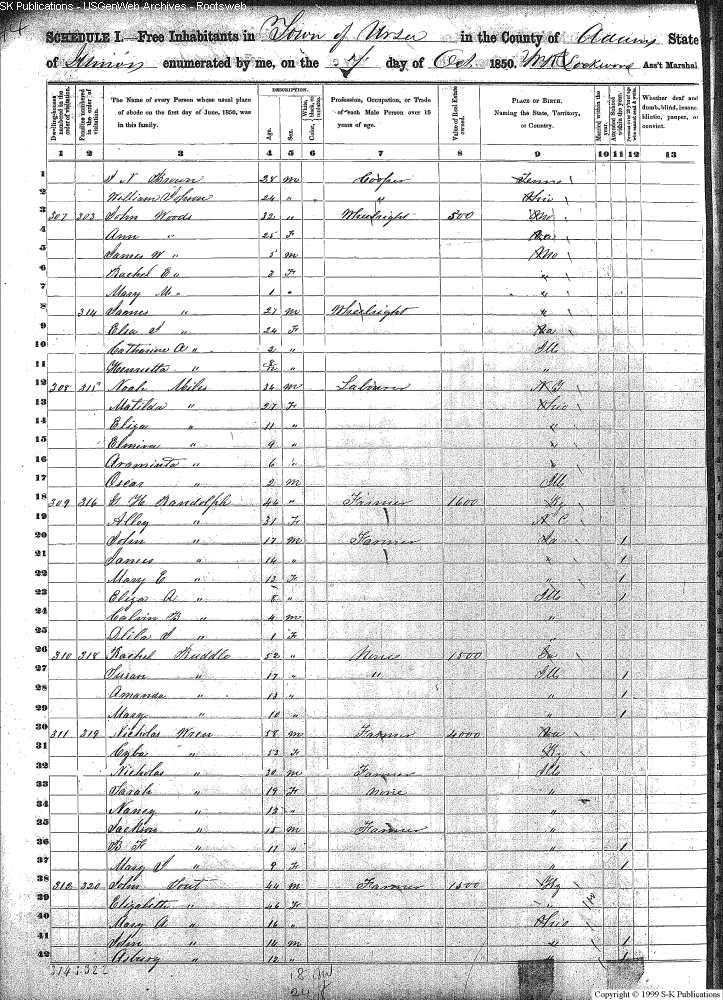 SK Publications - USGenWeb Archives - Rootsweb
SCHEDULE I.—Free Inhabitants in Town of Ursa in the County of Adams State
of Illinois enumerated by me, on the day of Oct. 1850. Ass't Marshal
Dwelling-houses numbered in the order of visitation.
Families numbered in the order of visitation.
The Name of every Person whose usual place of abode on the first day of June, 1850, was in this family.
DESCRIPTION.
Age.
Sex.
White, black, or mulatto.
Color,
Profession, Occupation, or Trade of each Male Person over 15 years of age.
Value of Real Estate owned.
PLACE OF BIRTH.
Naming the State, Territory, or Country.
Married within the year.
Attended School within the year.
Whether deaf and dumb, blind, insane, idiotic, pauper, or convict.
1 2 3 4 5 6 7 8 9 10 11 12 13
1 N Brown 28 m Cooper Tenn
2 William 24 " " " Ohio
3 307 303 John Woods 32 " Wheelright 500 Mo
4 Ann " 25 F Va
5 James W " 5 m Mo
6 Rachel E " 3 F "
7 Mary M " 1 " "
8 314 James " 27 m Wheelright "
9 Elza J " 24 F Va
10 Catharine A " 2 " Ills
11 Henrietta " 8/12 " "
12 308 315 Noah Miles 34 m Labourer
13 Matilda " 27 F Ohio
14 Eliza " 11 " "
15 Elmira " 9 " "
16 Araminta " 6 " "
17 Oscar " 2 m Ills
18 309 316 H Randolph 44 " Farmer 1600 Ky
19 Alley " 31 F N C
20 John " 17 m Farmer 1
21 James " 14 " " 1
22 Mary E " 12 F " 1
23 Eliza A " 8 " Ills 1
24 Calvin B " 4 m "
25 " 1 F "
26 310 318 Rachel Ruddle 52 " None 1500
27 Susan " 17 " " Ills 1
28 Amanda " 13 " " 1
29 Mary " 10 " " 1
30 311 319 Nicholas Wren 58 m Farmer 4000 Va
31 " 53 F
32 Nicholas " 30 m Farmer Ills
33 Sarah " 19 F None "
34 Nancy " " "
35 Jackson " 15 m Farmer "
36 B F " 11 " " 1
37 Mary J " 9 F " 1
38 312 320 John 44 m Farmer 1500 Ky
39 Elizabeth " 46 F "
40 Mary A " 16 " Ohio
41 John " 14 m " 1
42 Asbury " 12 " " 1
Copyright © 1999 S-K Publications